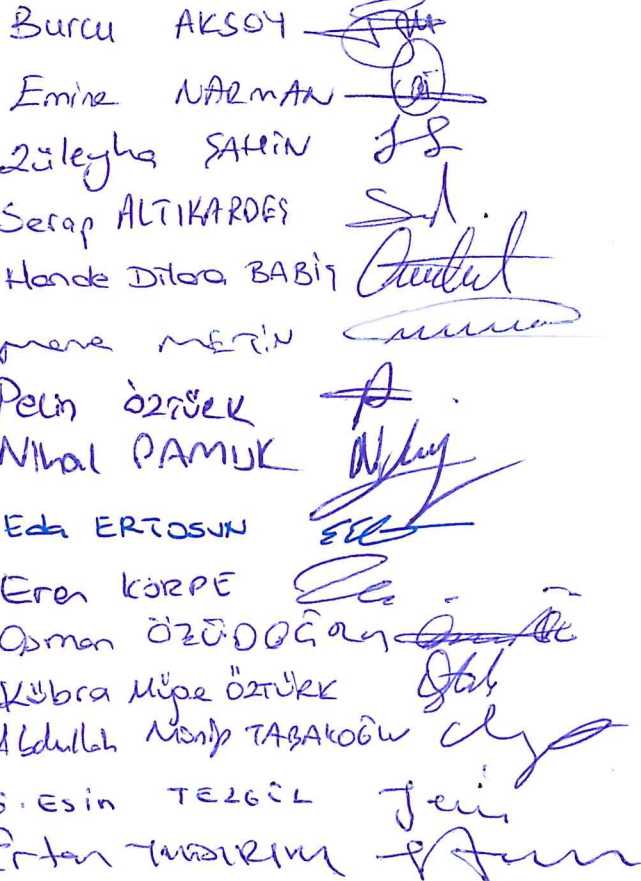 Burcu AKSOY
Emine NARMAN
Züleyha ŞAHİN
Serap ALTIKARDEŞ
Hande Dilara BABİŞ
METİN
Pelin ÖZTÜRK
Nihal PAMUK
Eda ERTOSUN
Eren KÖRPE
Osman ÖZÜDOĞRU
Kübra Müge ÖZTÜRK
Abdullah TABAKOĞLU
Esin TEZGÜL
Ertan YILDIRIM